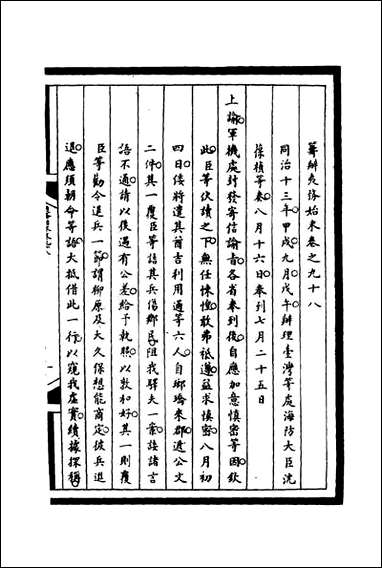 籌辦夷務始末卷之九十八
同治十三年甲戌九月戊午辦理臺灣等處海防大臣沈
葆楨等奏八月十六日奉到七月二十五日
上諭軍機處封發寄信諭旨各省奉到後自應加意慎密等因欽
此臣等伏讀之下無任悚惶敢弗祗遵益求慎密八月初
四日倭將遣其酋吉利用通等六人自瑯𤩝來郡遞公文
二件其一覆臣等詰其兵傷鄉民阻我驛夫一案諉諸言
語不通請以後遇有公差給予執照以敦和好其一則覆
臣等勸令退兵一節謂柳原及大久保想能商定彼兵進
退應須朝命等語大抵借此一行以窺我虛實續據探稱